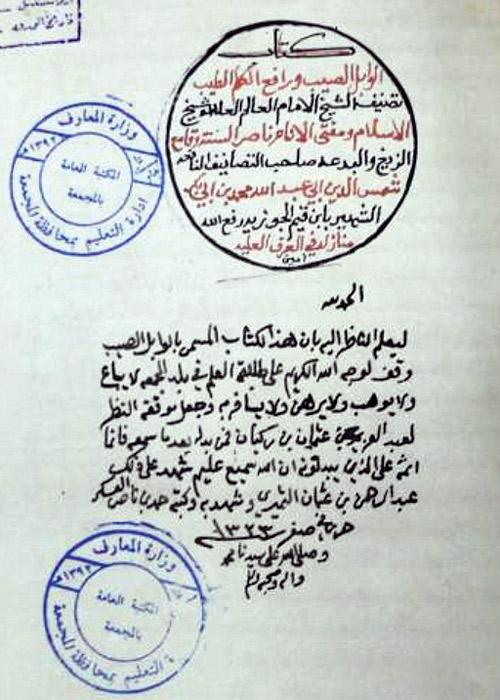 كتاب
الوابل الصيب ورافع الكلم الطيب
تصنيف الشيخ الامام العالم العلامة شيخ
الاسلام ومفتي الانام ناصر السنة وقامع
الزيغ والبدعة صاحب التصانيف
شمس الدين ابي عبد الله محمد بن ابي بكر
الشهير بابن قيم الجوزيه رفع الله
منازله في الغرف العليه
امين
وزارة المعارف
١٣٩٢
المكتبة العامة
بالمجمعة
ادارة التعليم بمحافظة المجمعة
الحمد لله
ليعلم الناظر اليه بان هذا الكتاب المسمى بالوابل الصيب
وقف لوجه الله الكريم على طلبة العلم في بلد المجمعه لا يباع
ولا يوهب ولا يرهن ولا يسافر به وجعل موقفه النظر
لعبد العزيز بن عثمان بن ركبان فمن بدله بعد ما سمعه فانما
اثمه على الذين يبدلونه ان الله سميع عليم شهد على ذلك
عبد الرحمن بن عثمان وشهد به وكتبه حمد بن ناصر العسكر
صفر ١٣٢٣
وصلى الله على سيدنا محمد
واله وصحبه وسلم
وزارة المعارف
١٣٩٢
المكتبة العامة
بالمجمعة
التعليم بمحافظة المجمعة